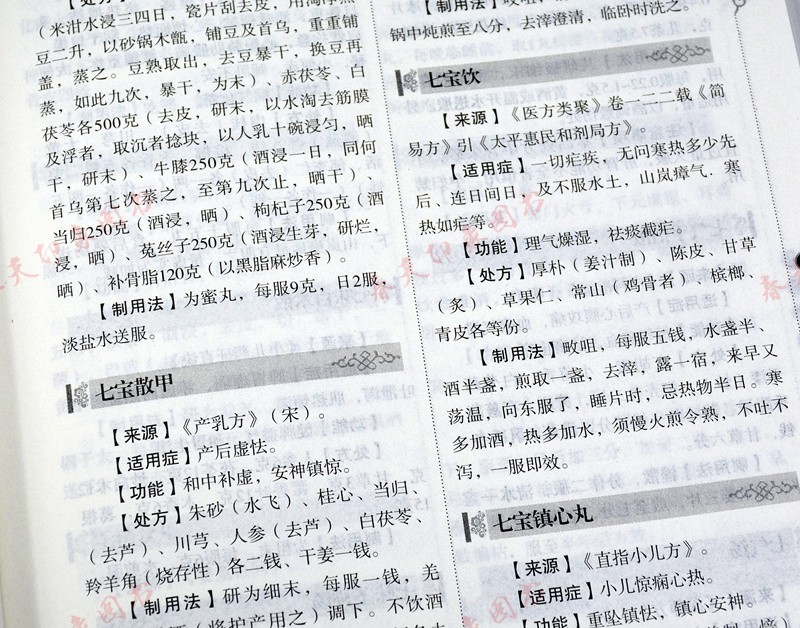 （米泔水浸三四日，瓷片刮去皮，用淘净黑
豆一升，以砂锅木甑，铺豆及首乌，重重铺
盖，蒸之。豆熟取出，去豆暴干，换豆再
蒸，如此九次，暴干，为末）、赤茯苓、白
茯苓各500克（去皮，研末，以水淘去筋膜
及浮者，取沉者捻块，以人乳十碗浸匀，晒
干，研末）、牛膝250克（酒浸一日，同何
首乌第七次蒸之，至第九次止，晒干）、
当归250克（酒浸，晒）、枸杞子250克（酒
浸，晒）、菟丝子250克（酒浸生芽，研烂，
晒）、补骨脂120克（以黑脂麻炒香）。
【制用法】为蜜丸，每服9克，日2服，
淡盐水送服。
七宝散甲
【来源】《产乳方》（宋）。
【适用症】产后虚怯。
【功能】和中补虚，安神镇惊。
【处方】朱砂（水飞）、桂心、当归、
（去芦）、川芎、人参（去芦）、白茯苓、
羚羊角（烧存性）各二钱、干姜一钱。
【制用法】研为细末，每服一钱，羌
（将护产用之）调下。不饮酒
【制用法】
锅中炖煎至八分，去滓澄清，临卧时洗之。
七宝饮
【来源】《医方类聚》卷一二二载《简
易方》引《太平惠民和剂局方》。
【适用症】一切疟疾，无问寒热多少先
后、连日间日，及不服水土，山岚瘴气．寒
热如疟等。
【功能】理气燥湿，祛痰截疟。
【处方】厚朴（姜汁制）、陈皮、甘草
（炙）、草果仁、常山（鸡骨者）、槟榔、
青皮各等份。
【制用法】㕮咀，每服五钱，水盏半、
酒半盏，煎取一盏，去滓，露一宿，来早又
荡温，向东服了，睡片时，忌热物半日。寒
多加酒，热多加水，须慢火煎令熟，不吐不
泻，一服即效。
七宝镇心丸
【来源】《直指小儿方》。
【适用症】小儿惊痫心热。
【功能】重坠镇怯，镇心安神。